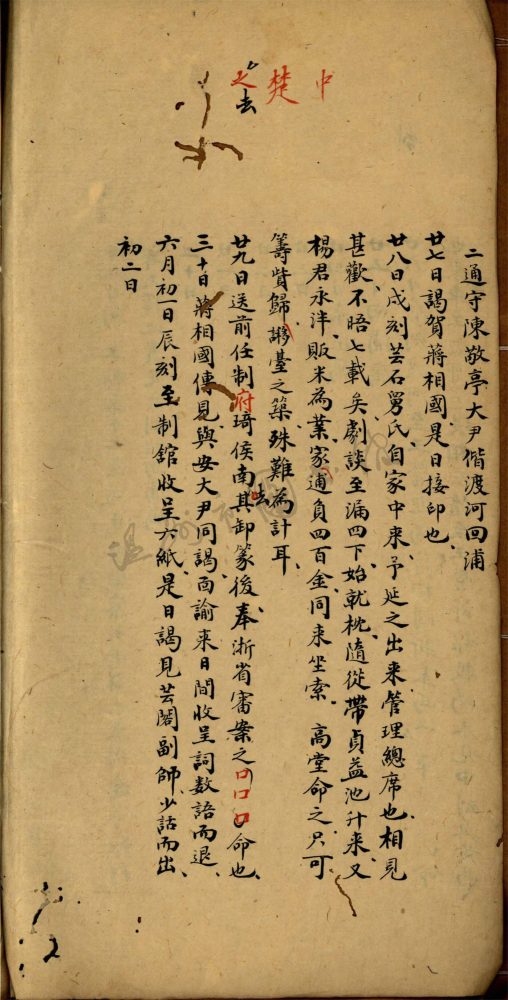 中楚之
去
二通守陳敬亭大尹偕渡河回浦
廿七日謁賀蔣相國是日接印也
廿八日戌刻芸石舅氏自家中來予延之出来管理總席也相見
甚歡不晤七載矣劇談至漏四下始就枕隨從帶貞益池升来又
楊君永泮販米為業家逋負四百金同来坐索 高堂命之只可
籌貲歸 臺之築殊難為計耳
廿九日送前任制府琦侯南其卸篆後奉浙省審案之口口口命也
三十日蔣相國傳見與安大尹同謁面諭来日間收呈詞數語而退
六月初一日辰刻至制舘收呈六紙是日謁見芸閣副師少話而出
初二日